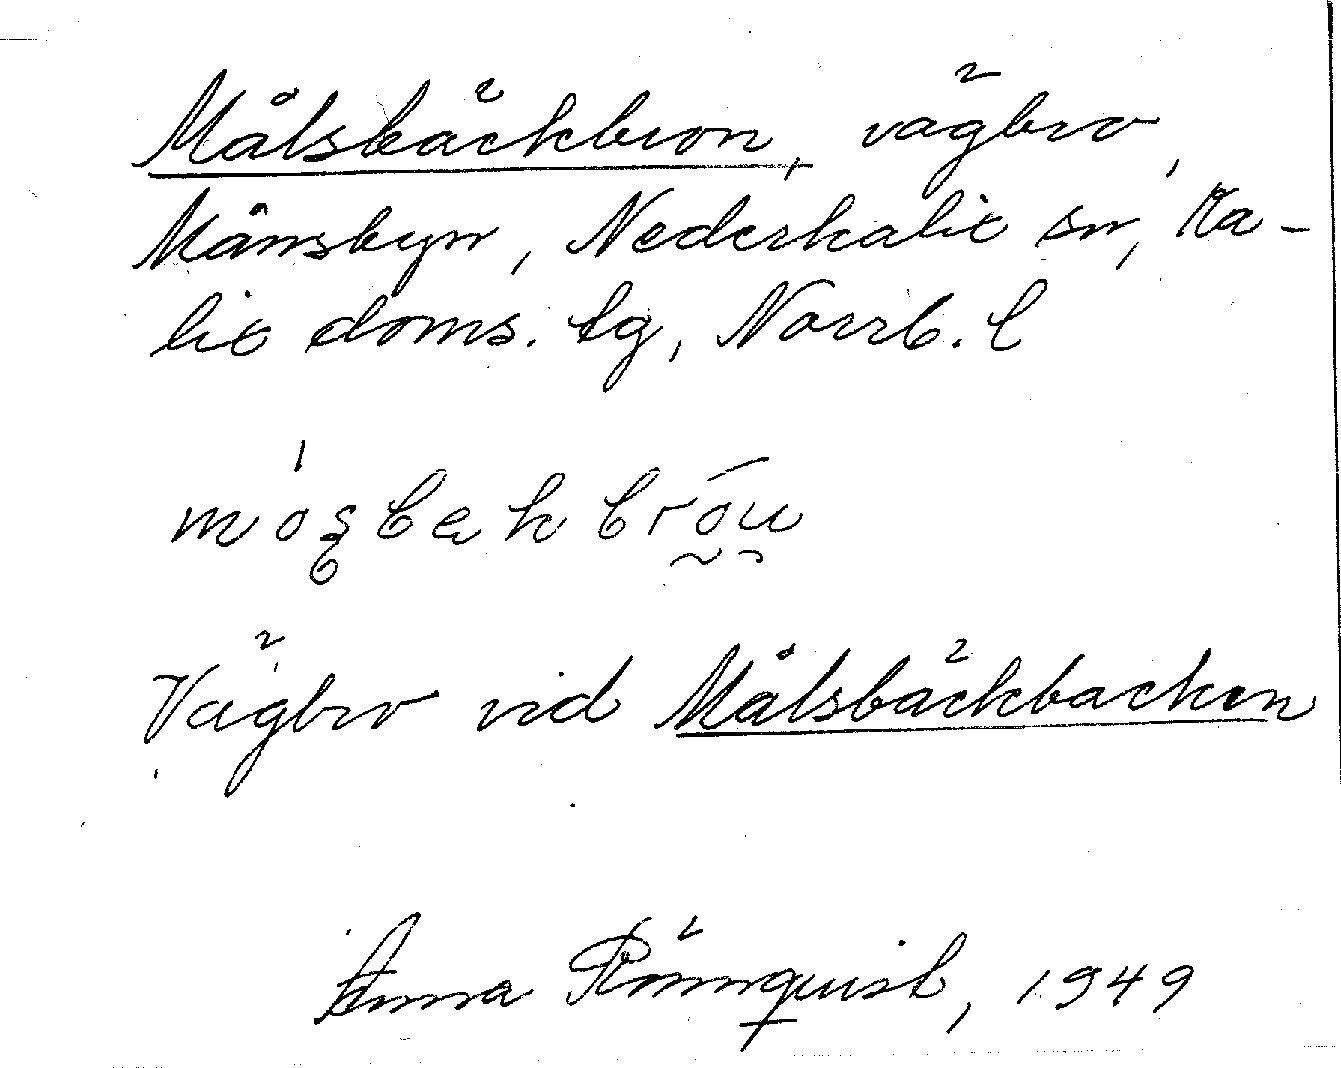 Målsbäckbron, vägbro,
Månsbyn, Nederkalix sn, Ka-
lix doms. tg, Norrb. l
Vägbro vid Målsbäckbacken
Anna Rönnquist, 1949